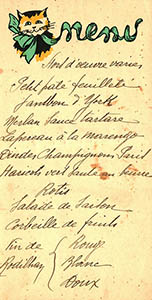 Menu
Hors d'oeuvre variés
Petit pâté feuilleté
Jambon d'York
Merlan Sauce Tartare
Lapereau à la marengo
Champignons Paris
Haricots vert sauté au beurre
Rotis
Salade de Saison
Corbeille de fruits
Vin de Rouge
Blanc
Doux